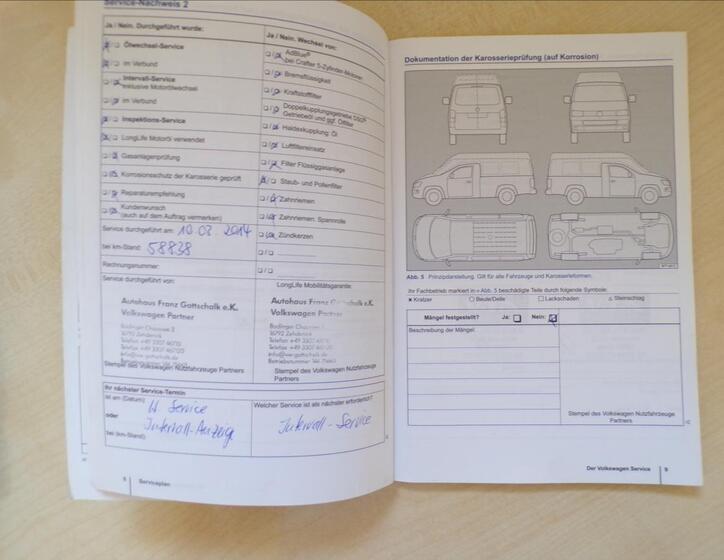 Service-Nachweis 2
Ja / Nein. Durchgeführt wurde:
Ölwechsel-Service
im Verbund
Intervall-Service
inklusive Motorölwechsel
im Verbund
Inspektions-Service
LongLife Motoröl verwendet
Gasanlagenprüfung
Korrosionsschutz der Karosserie geprüft
Reparaturempfehlung
Kundenwunsch
(auch auf dem Auftrag vermerken)
Service durchgeführt am: 10.03.2014
bei km-Stand: 58838
Rechnungsnummer:
Service durchgeführt von:
Autohaus Franz Gottschalk e.K.
Volkswagen Partner
16792 Zehdenick
Stempel des Volkswagen Nutzfahrzeuge Partners
Ja / Nein. Wechsel von:
AdBlue®
bei Crafter 5-Zylinder-Motoren
Bremsflüssigkeit
Kraftstofffilter
Doppelkupplungsgetriebe DSG®
Getriebeöl und ggf. Ölfilter
Haldexkupplung: Öl
Luftfiltereinsatz
Filter Flüssiggasanlage
Staub- und Pollenfilter
Zahnriemen
Zahnriemen: Spannrolle
Zündkerzen
LongLife Mobilitätsgarantie:
Autohaus Franz Gottschalk e.K.
Volkswagen Partner
16792 Zehdenick
Stempel des Volkswagen Nutzfahrzeuge
Partners
Ihr nächster Service-Termin
ist am (Datum):
oder
bei (km-Stand):
lt. Service
Intervall-Anzeige
Welcher Service ist als nächster erforderlich?
Intervall-Service
Serviceplan
Dokumentation der Karosserieprüfung (auf Korrosion)
Abb. 5 Prinzipdarstellung. Gilt für alle Fahrzeuge und Karosserieformen.
Ihr Fachbetrieb markiert in » Abb. 5 beschädigte Teile durch folgende Symbole:
× Kratzer ○ Beule/Delle □ Lackschaden △ Steinschlag
Mängel festgestellt? Ja: Nein:
Beschreibung der Mängel:
Stempel des Volkswagen Nutzfahrzeuge
Partners
Der Volkswagen Service 9